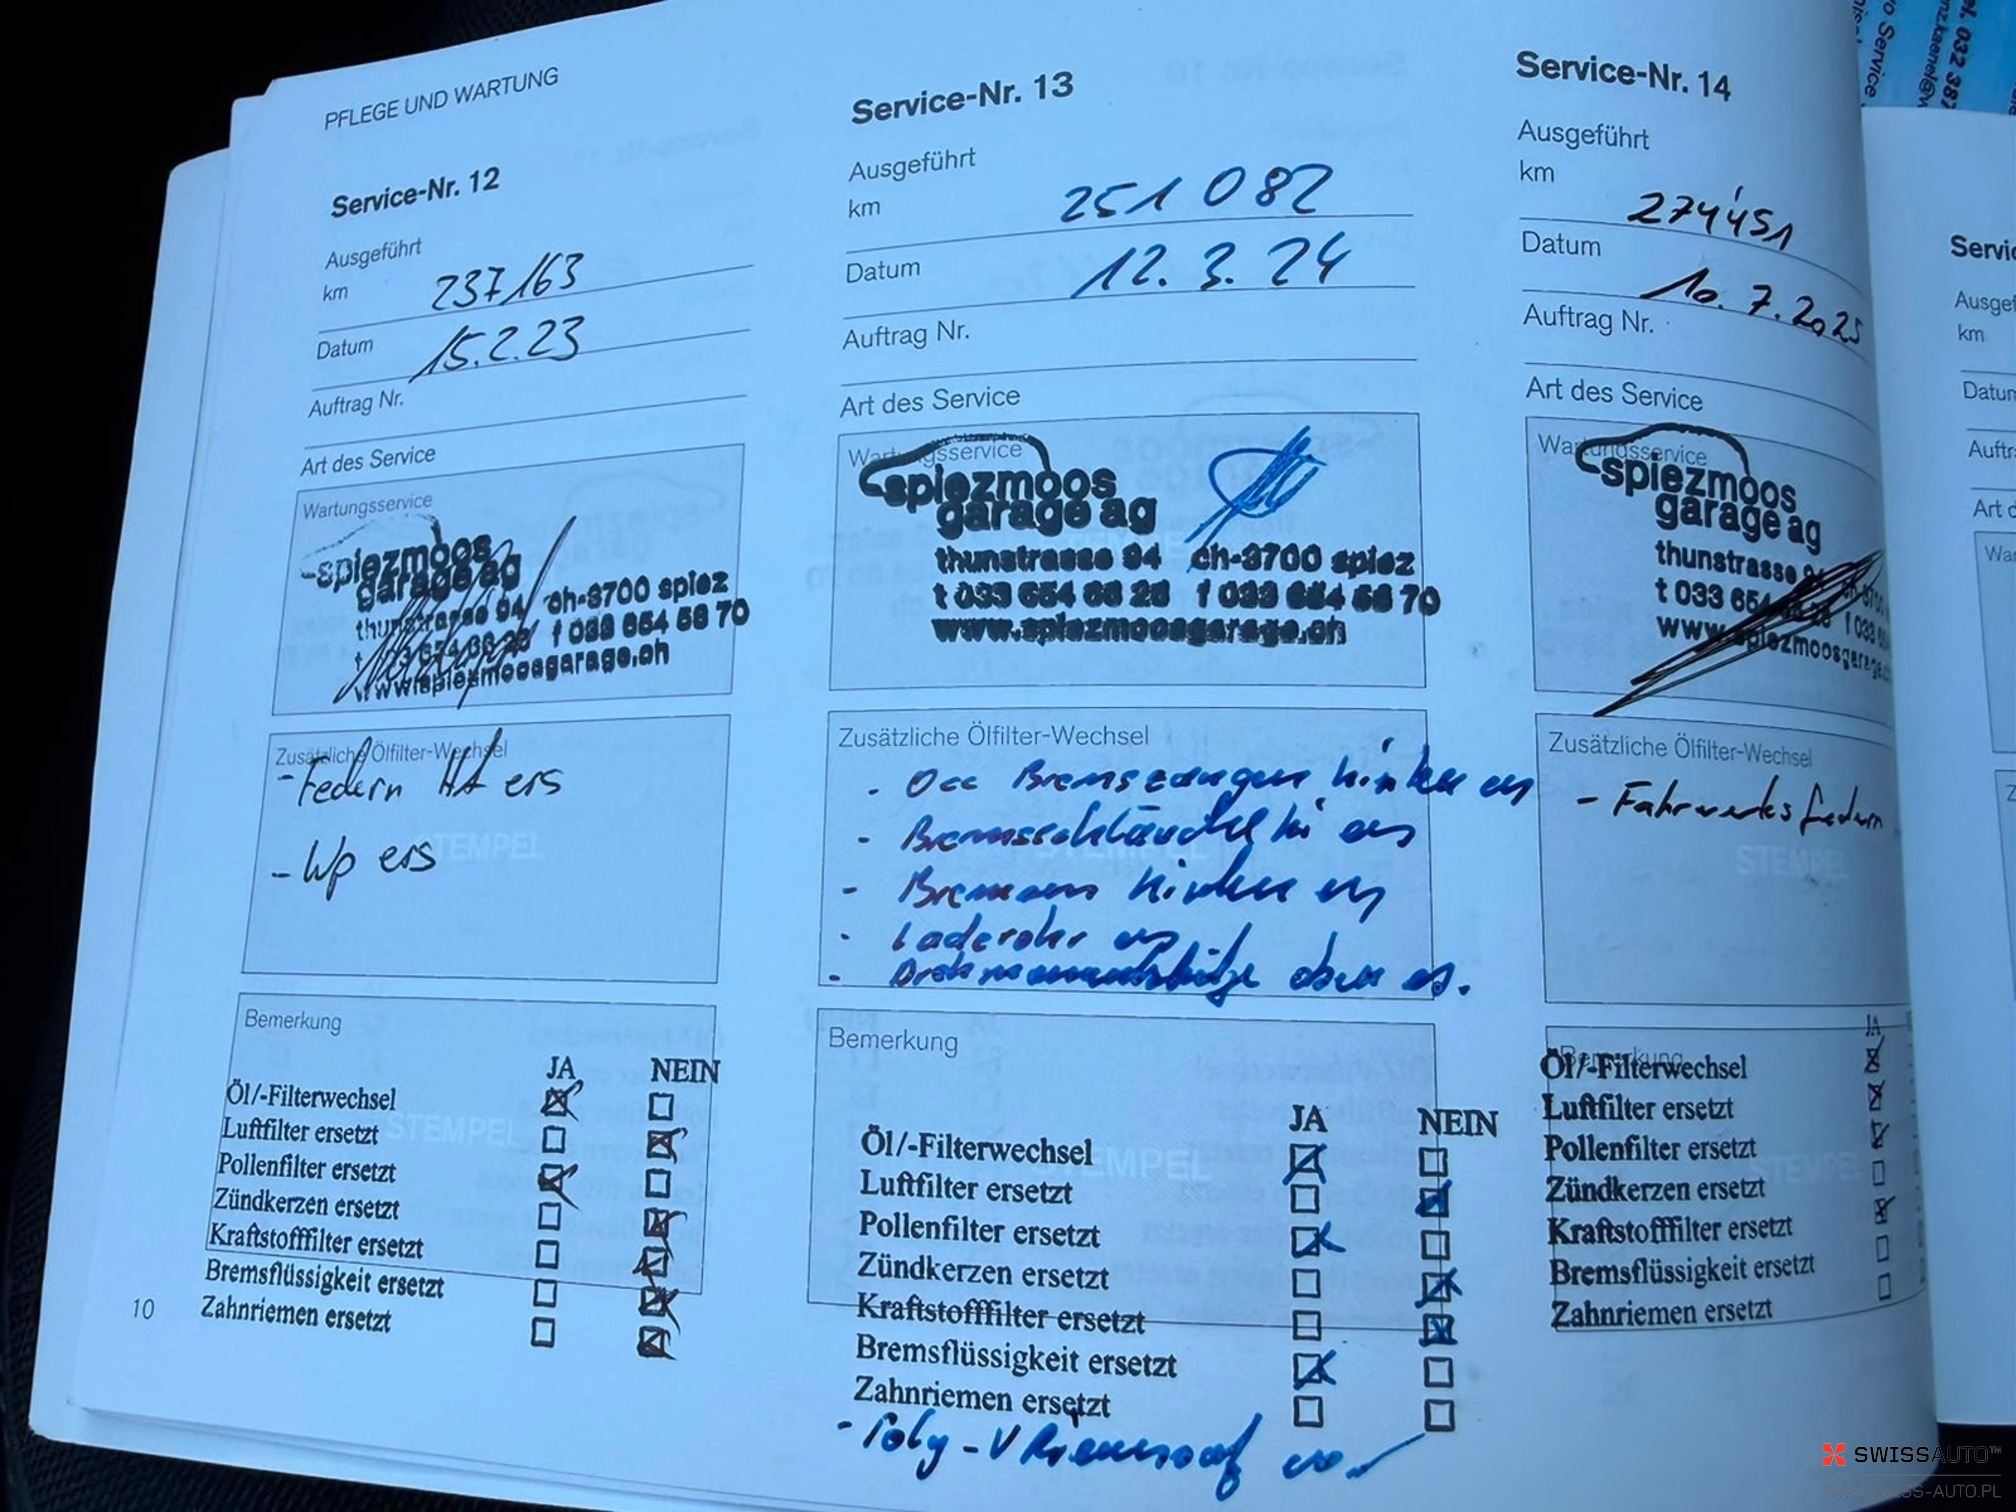 PFLEGE UND WARTUNG
Service-Nr. 12
Ausgeführt
km 237'163
Datum 15.2.23
Auftrag Nr.
Art des Service
Wartungsservice
spiezmoos
garage ag
thunstrasse 94 ch-3700 spiez
f 033 654 58 70
www.spiezmoosgarage.ch
Zusätzliche Ölfilter-Wechsel
- Federn HA ers
- Wp ers
STEMPEL
Bemerkung
JA NEIN
Öl/-Filterwechsel
Luftfilter ersetzt
STEMPEL
Pollenfilter ersetzt
Zündkerzen ersetzt
Kraftstofffilter ersetzt
Bremsflüssigkeit ersetzt
Zahnriemen ersetzt
10
Service-Nr. 13
Ausgeführt
km 251 082
Datum 12.3.24
Auftrag Nr.
Art des Service
Wartungsservice
spiezmoos
garage ag
thunstrasse 94 ch-3700 spiez
t 033 654 68 28 f 033 654 58 70
www.spiezmoosgarage.ch
Zusätzliche Ölfilter-Wechsel
- Occ Bremszangen hinten ers
- Bremsschläuche hi ers
- Bremsen hinten ers
- Laderohr ers
- oben ers.
Bemerkung
JA NEIN
Öl/-Filterwechsel
STEMPEL
Luftfilter ersetzt
Pollenfilter ersetzt
Zündkerzen ersetzt
Kraftstofffilter ersetzt
Bremsflüssigkeit ersetzt
Zahnriemen ersetzt
- Poly-V Riemen
Service-Nr. 14
Ausgeführt
km 274'451
Datum 10.7.2025
Auftrag Nr.
Art des Service
Wartungsservice
spiezmoos
garage ag
thunstrasse
t 033 654
www.spiezmoosgarage
Zusätzliche Ölfilter-Wechsel
- Fahrwerksfedern
STEMPEL
Bemerkung
JA
Öl/-Filterwechsel
Luftfilter ersetzt
Pollenfilter ersetzt
STEMPEL
Zündkerzen ersetzt
Kraftstofffilter ersetzt
Bremsflüssigkeit ersetzt
Zahnriemen ersetzt
Servi
Ausgef
km
Datum
Auftr
Art d
Wa
Z
Service
SWISSAUTO™